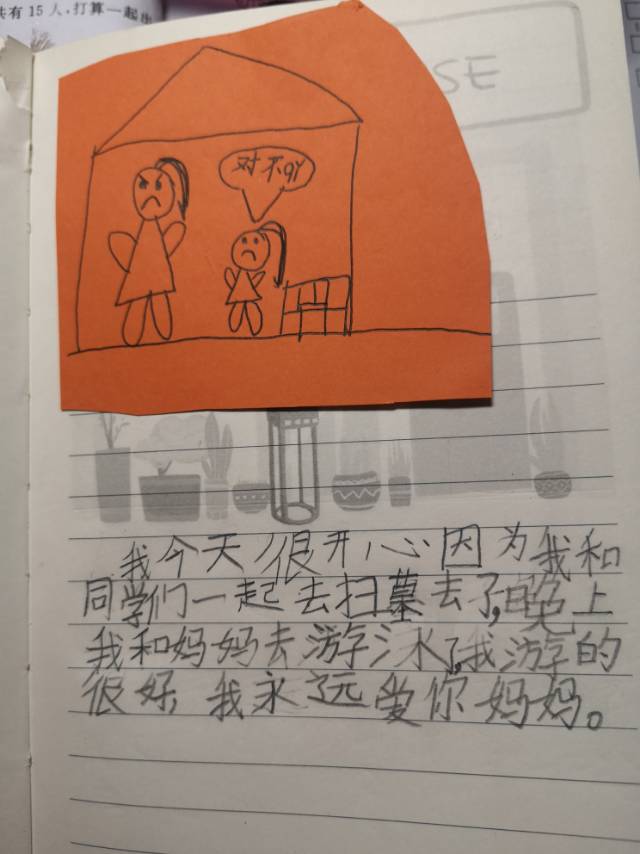 共有15人,打算一起出
SE
对不qǐ
我今天很开心因为我和
同学们一起去扫墓去了,晚上
我和妈妈去游泳了,我游的
很好,我永远爱你妈妈。